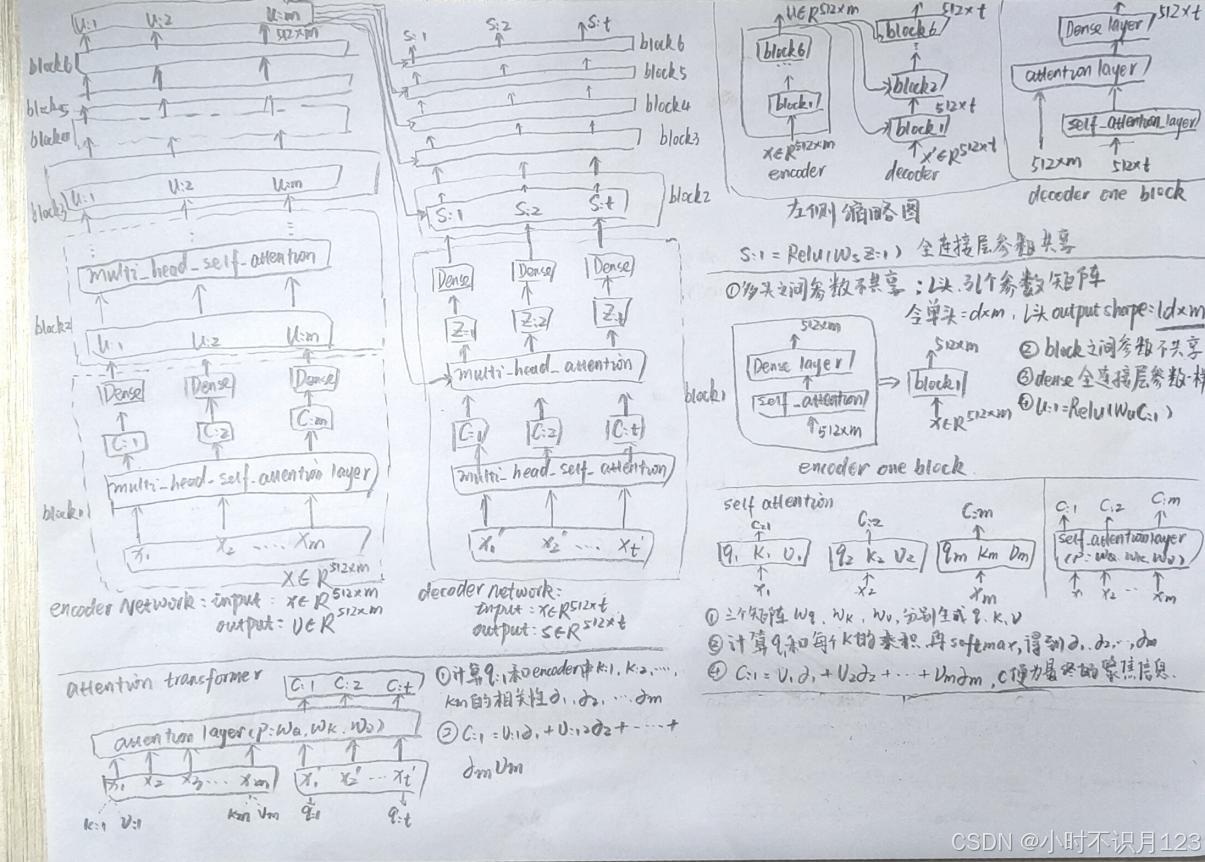 U:1 U:2 U:m
512×m
block6
block5
block4
U:1 U:2 U:m
block3
multi_head_self_attention
block2
U:1 U:2 U:m
Dense Dense Dense
C:1 C:2 C:m
multi_head_self_attention layer
block1
x1 x2 ..... xm
X∈R512×m
encoder Network: input: X∈R512×m
output: U∈R512×m
S:1 S:2 S:t
block6
block5
block4
block3
block2
S:1 S:2 S:t
Dense Dense Dense
Z:1 Z:2 Z:t
multi_head_attention
block1
C:1 C:2 C:t
multi_head_self_attention
x1' x2' ... xt'
decoder network:
input: X∈R512×t
output: S∈R512×t
U∈R512×m 512×t
block6 block6
block2
512×t
block1 block1
X∈R512×m X'∈R512×t
encoder decoder
左侧缩略图
512×t
Dense layer
attention layer
self_attention_layer
512×m 512×t
decoder one block
S:1 = Relu(WsZ:1) 全连接层参数共享
①多头之间参数不共享;l头,3l个参数矩阵
令单头=d×m,l头output shape=ld×m
512×m
Dense layer
self_attention
512×m
encoder one block
512×m
block1
X∈R512×m
②block之间参数不共享
③dense全连接层参数一样
④U:1=Relu(WuC:1)
self attention
C:1 C:2 C:m
q1 K1 V1 q2 K2 V2 qm Km Vm
x1 x2 xm
C:1 C:2 C:m
self_attention layer
(P: WQ, WK, WV)
x1 x2 ... xm
①三个矩阵 Wq、Wk、Wv,分别生成 q、k、v
③计算q1和每个k的乘积,再softmax,得到∂1、∂2、…、∂m
④C:1=V1∂1+V2∂2+…+Vm∂m,C便为最终的聚焦信息.
attention transformer
C:1 C:2 C:t
attention layer(P: WQ, WK, WV)
x1 x2 x3 ... xm x1' x2' ... xt'
k:1 V:1 km Vm q:1 q:t
①计算q:1和encoder中k:1, k:2, ...,
km的相关性∂1, ∂2, ... ∂m
②C:1=V:1∂1+V:2∂2+ ······ +
∂mVm
CSDN @小时不识月123